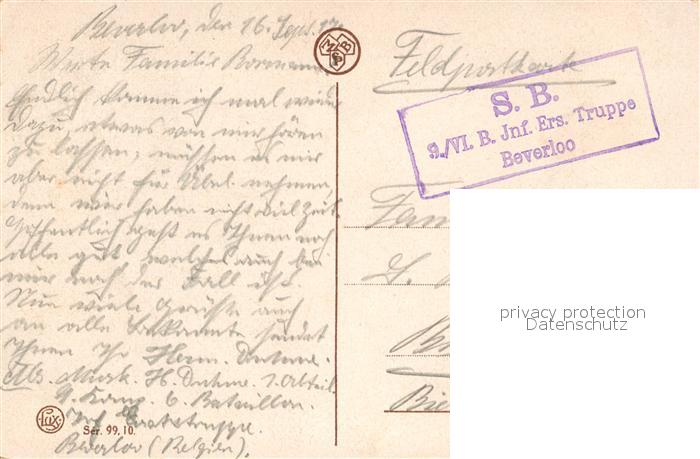 Beverloo, den 16. Sept. 17.
Werte Familie Bormann.
Endlich komme ich mal wieder
dazu, etwas von mir hören
zu lassen, müssen es mir
aber nicht für Übel nehmen,
denn wir haben nicht viel Zeit.
Hoffentlich geht es Ihnen noch
alle gut, welches auch bei
mir noch der Fall ist.
Nun viele Grüße auch
an alle Bekannte sendet
Ihnen Ihr Herm.
Abs. Musk. H. 1. Abteil.
9. Komp. 6. Bataillon.
Inf. Ersatztruppe.
Beverloo (Belgien).
Lux
Ser. 99, 10.
Feldpostkarte
S. B.
9./VI. B. Jnf. Ers. Truppe
Beverloo
Fam
privacy protection
Datenschutz